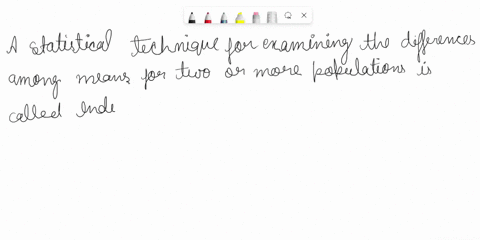 A statistical technique for examining the differences
among means for two or more populations is
called Inde